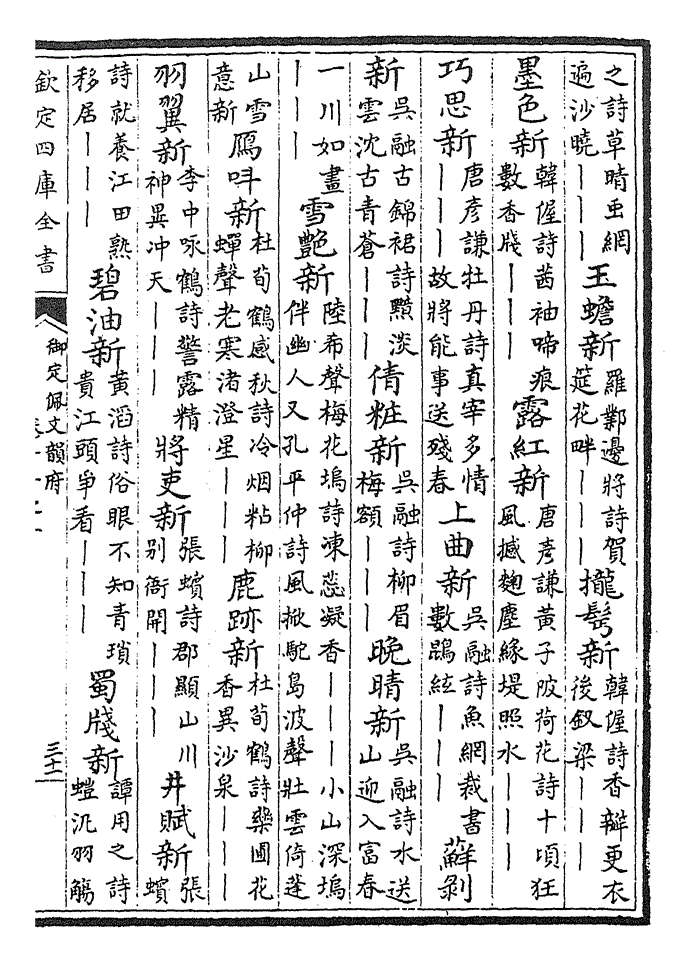 之詩草晴虫網遍沙曉｜｜｜玉蟾新羅鄴邊將詩賀筵花畔｜｜｜攏髩新韓偓詩香辮更衣後釵梁｜｜｜
墨色新韓偓詩茜袖啼痕數香牋｜｜｜露紅新唐彥謙黃子陂荷花詩十頃狂風撼麴塵緣堤照水｜｜｜
巧思新唐彥謙牡丹詩真宰多情｜｜｜故將能事送殘春上曲新吳融詩魚網裁書數鵾絃｜｜｜蘚剝
新吳融古錦裙詩黦淡雲沈古青蒼｜｜｜倩粧新吳融詩柳眉梅額｜｜｜晚晴新吳融詩水送山迎入富春
一川如畫｜｜｜雪艷新陸希聲梅花塢詩凍蕊凝香｜｜｜小山深塢伴幽人又孔平仲詩風掀駝島波聲壯雲倚蓬
山雪意新鴈呌新杜荀鶴感秋詩冷烟粘柳蟬聲老寒渚澄星｜｜｜鹿跡新杜荀鶴詩藥圃花香異沙泉｜｜｜
羽翼新李中咏鶴詩警露精神異冲天｜｜｜將吏新張蠙詩郡顯山川別衙開｜｜｜井賦新張蠙
詩就養江田熟移居｜｜｜碧油新黃滔詩俗眼不知青瑣貴江頭爭看｜｜｜蜀牋新譚用之詩螘汎羽觴
欽定四庫全書
御定佩文韻府
三十二